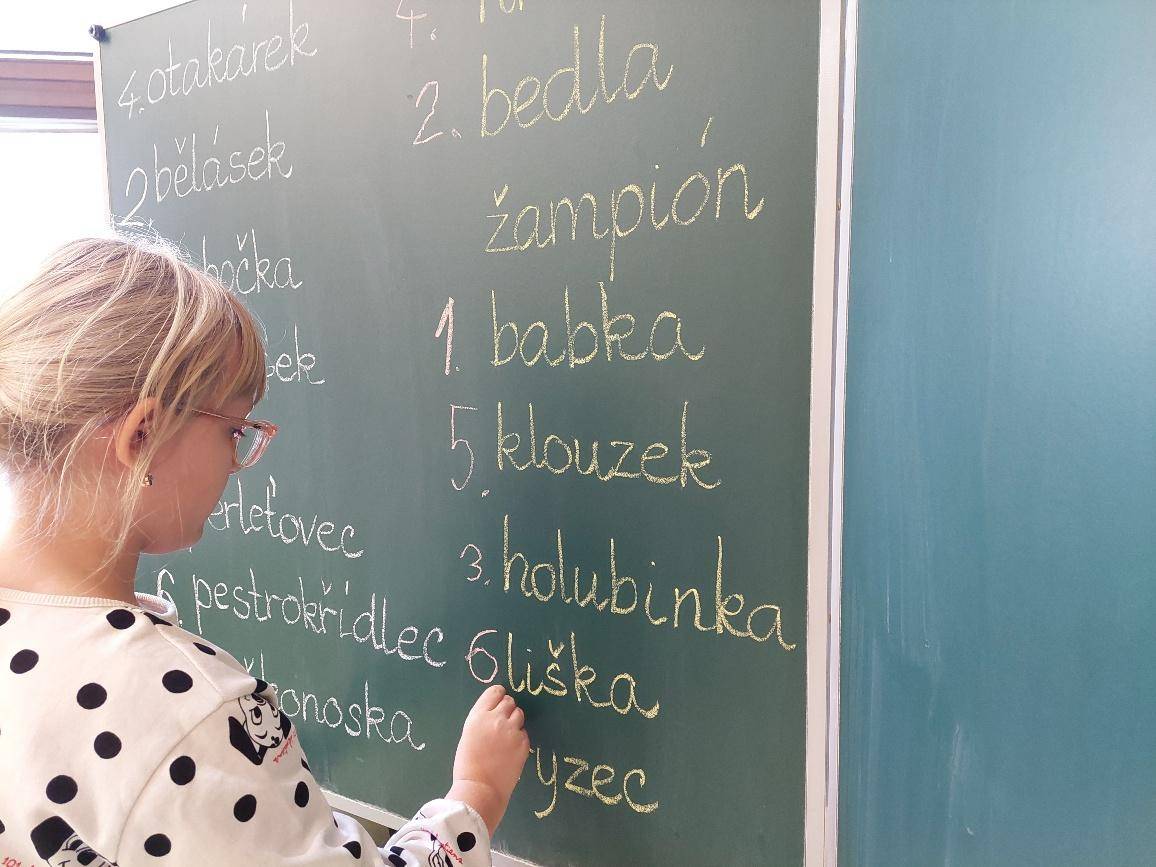 4. otakárek
2 bělásek
bočka
bek
erleťovec
6. pestrokřídlec
onoska
4.
2. bedla
žampión
1. babka
5. klouzek
3. holubinka
6 liška
yzec